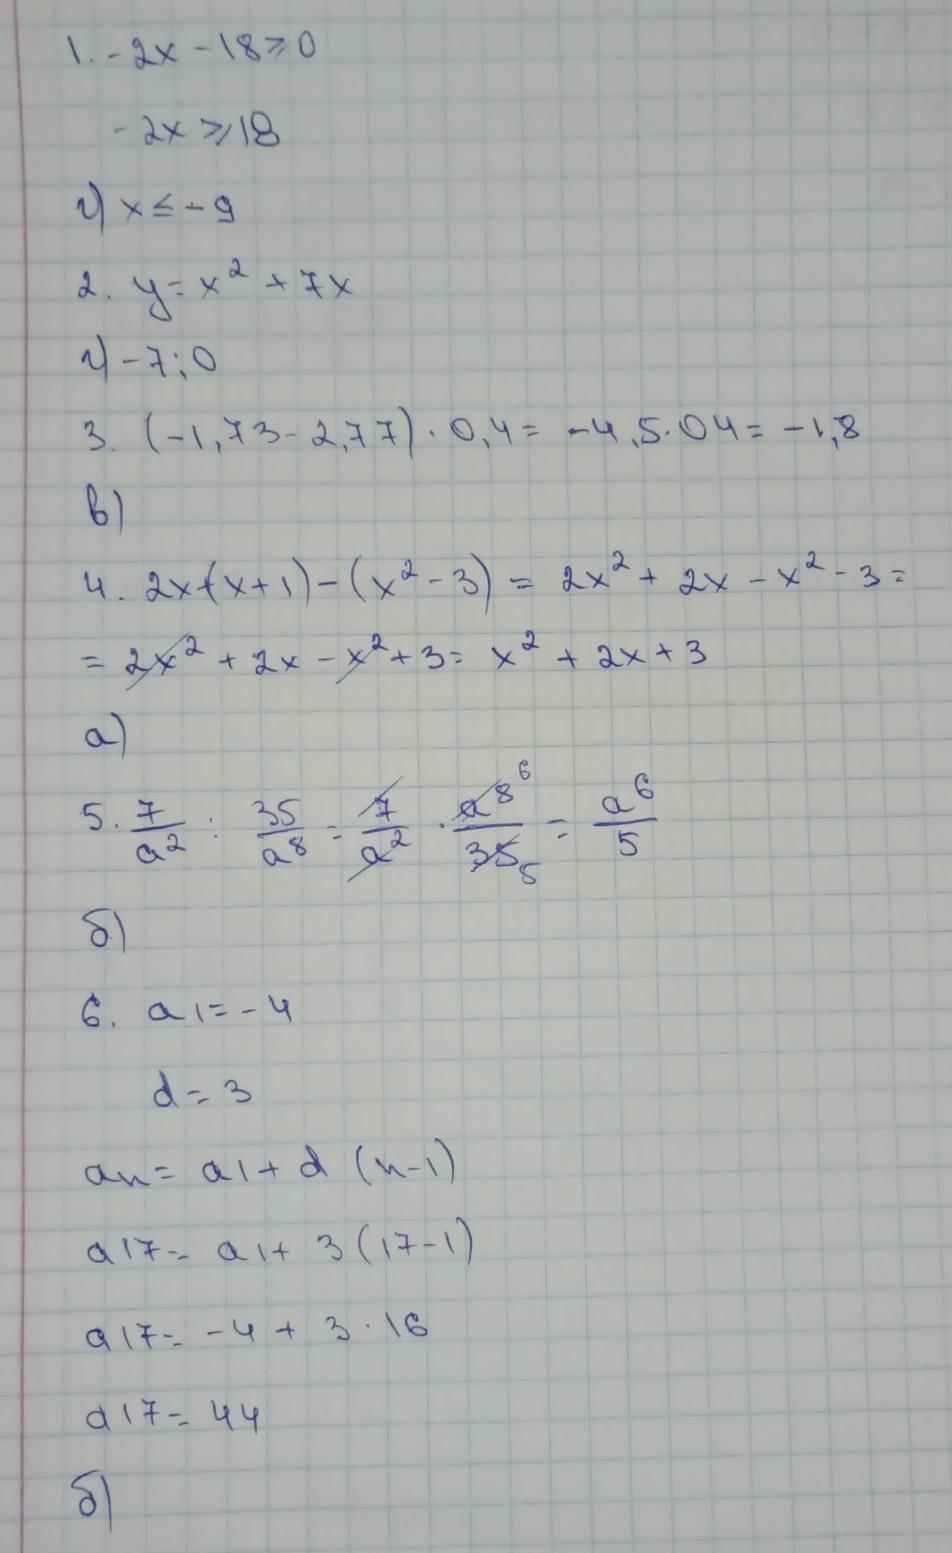 1. -2x - 18 ≥ 0
-2x ≥ 18
г) x ≤ -9
2. y = x² + 7x
г) -7; 0
3. (-1,73 - 2,77) · 0,4 = -4,5 · 04 = -1,8
в)
4. 2x·(x+1) - (x² - 3) = 2x² + 2x - x² - 3 =
= 2x² + 2x - x² + 3 = x² + 2x + 3
а)
5. 7/a² : 35/a⁸ = 7/a² · a⁸ 6/35 5 = a⁶/5
б)
6. a1 = -4
d = 3
an = a1 + d (n-1)
a17 = a1 + 3 (17-1)
a17 = -4 + 3 · 16
a17 = 44
б)